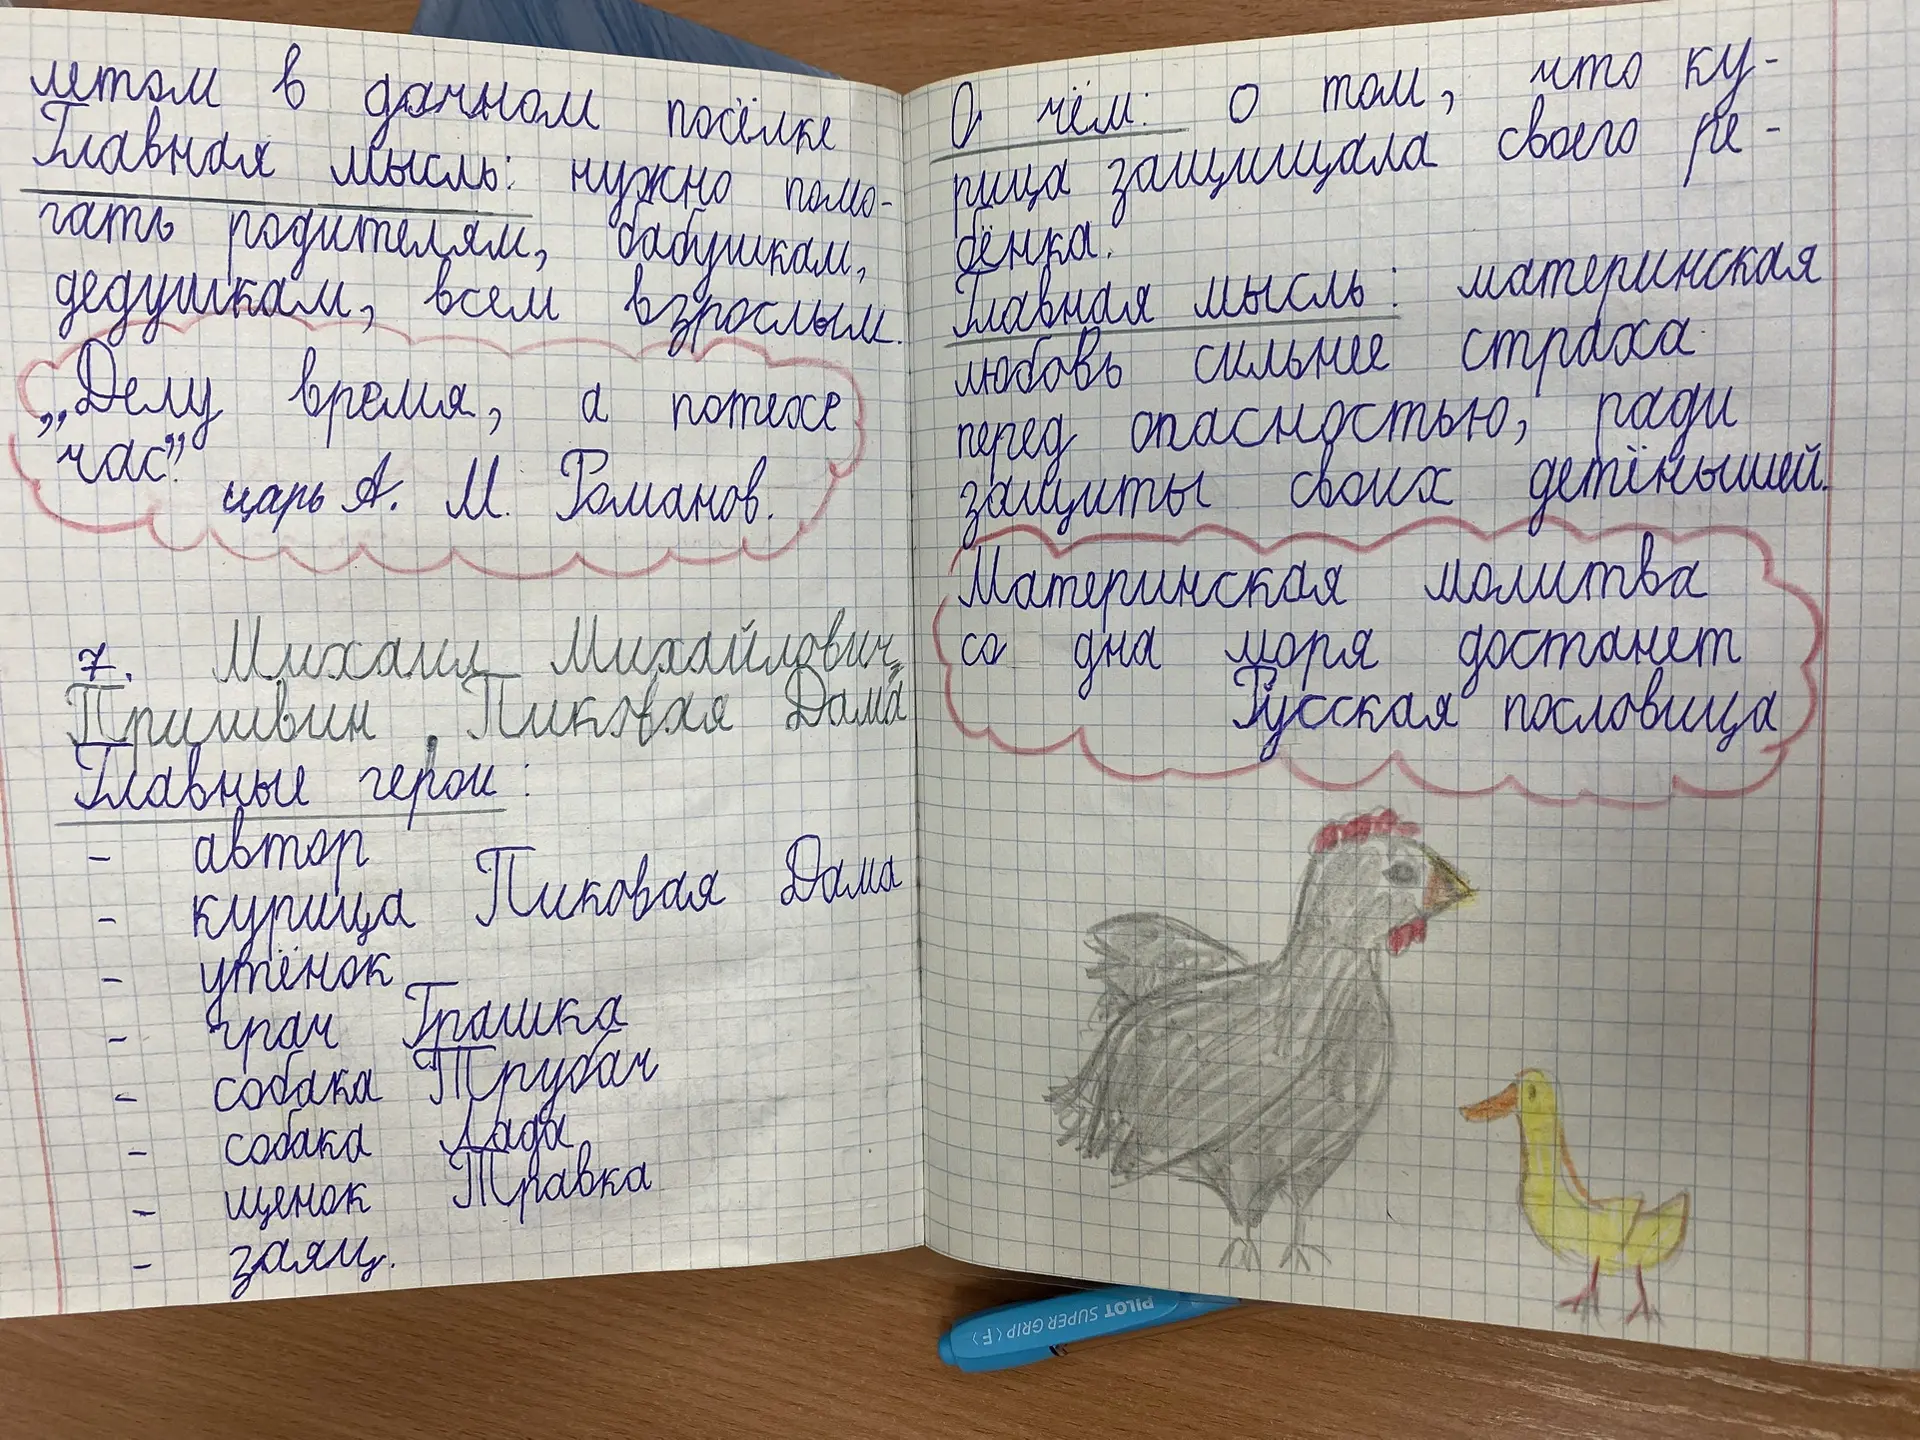 летом в дачном посёлке
Главная мысль: нужно помо-
гать родителям, бабушкам,
дедушкам, всем взрослым.
„Делу время, а потехе
час”.
царь А. М. Романов.
7. Михаил Михайлович
Пришвин „Пиковая Дама"
Главные герои:
- автор
- курица Пиковая Дама
- утёнок
- грач Грашка
- собака Трубач
- собака Лада
- щенок Травка
- заяц.
О чём: о том, что ку-
рица защищала своего ре-
бёнка.
Главная мысль: материнская
любовь сильнее страха
перед опасностью, ради
защиты своих детёнышей.
Материнская молитва
со дна моря достанет
Русская пословица
PILOT SUPER GRIP (F)